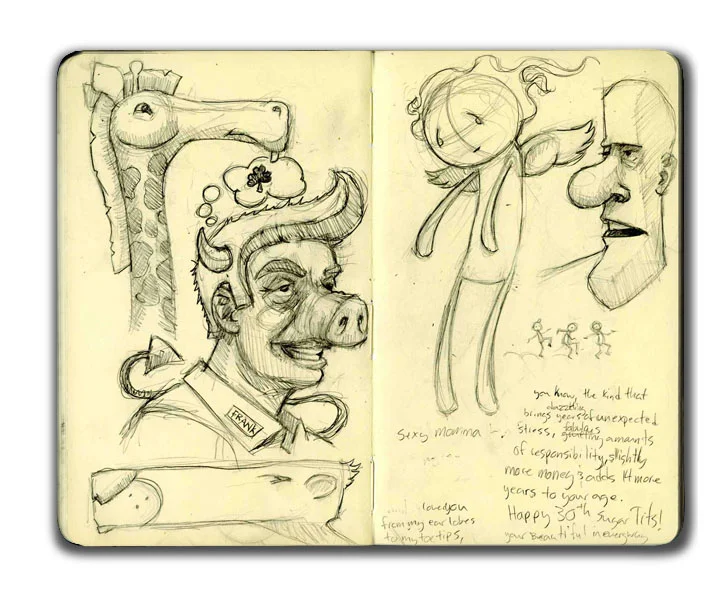 FRANK
sexy momma
love you
from my ear lobes
to my toe tips,
you know, the kind that
dazzling
brings years of unexpected
fabulous
stress, amounts
of responsibility, slightly
more money & adds 14 more
years to your age.
Happy 30th Sugar Tits!
your beautiful in everyway